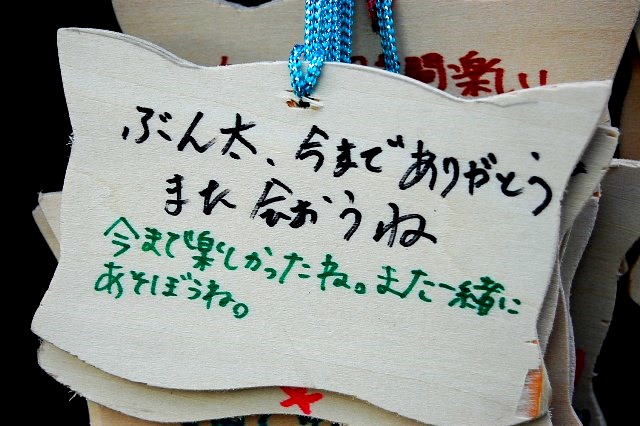 間楽しい
ぶん太、今までありがとう
また会おうね
今まで楽しかったね。また一緒に
あそぼうね。